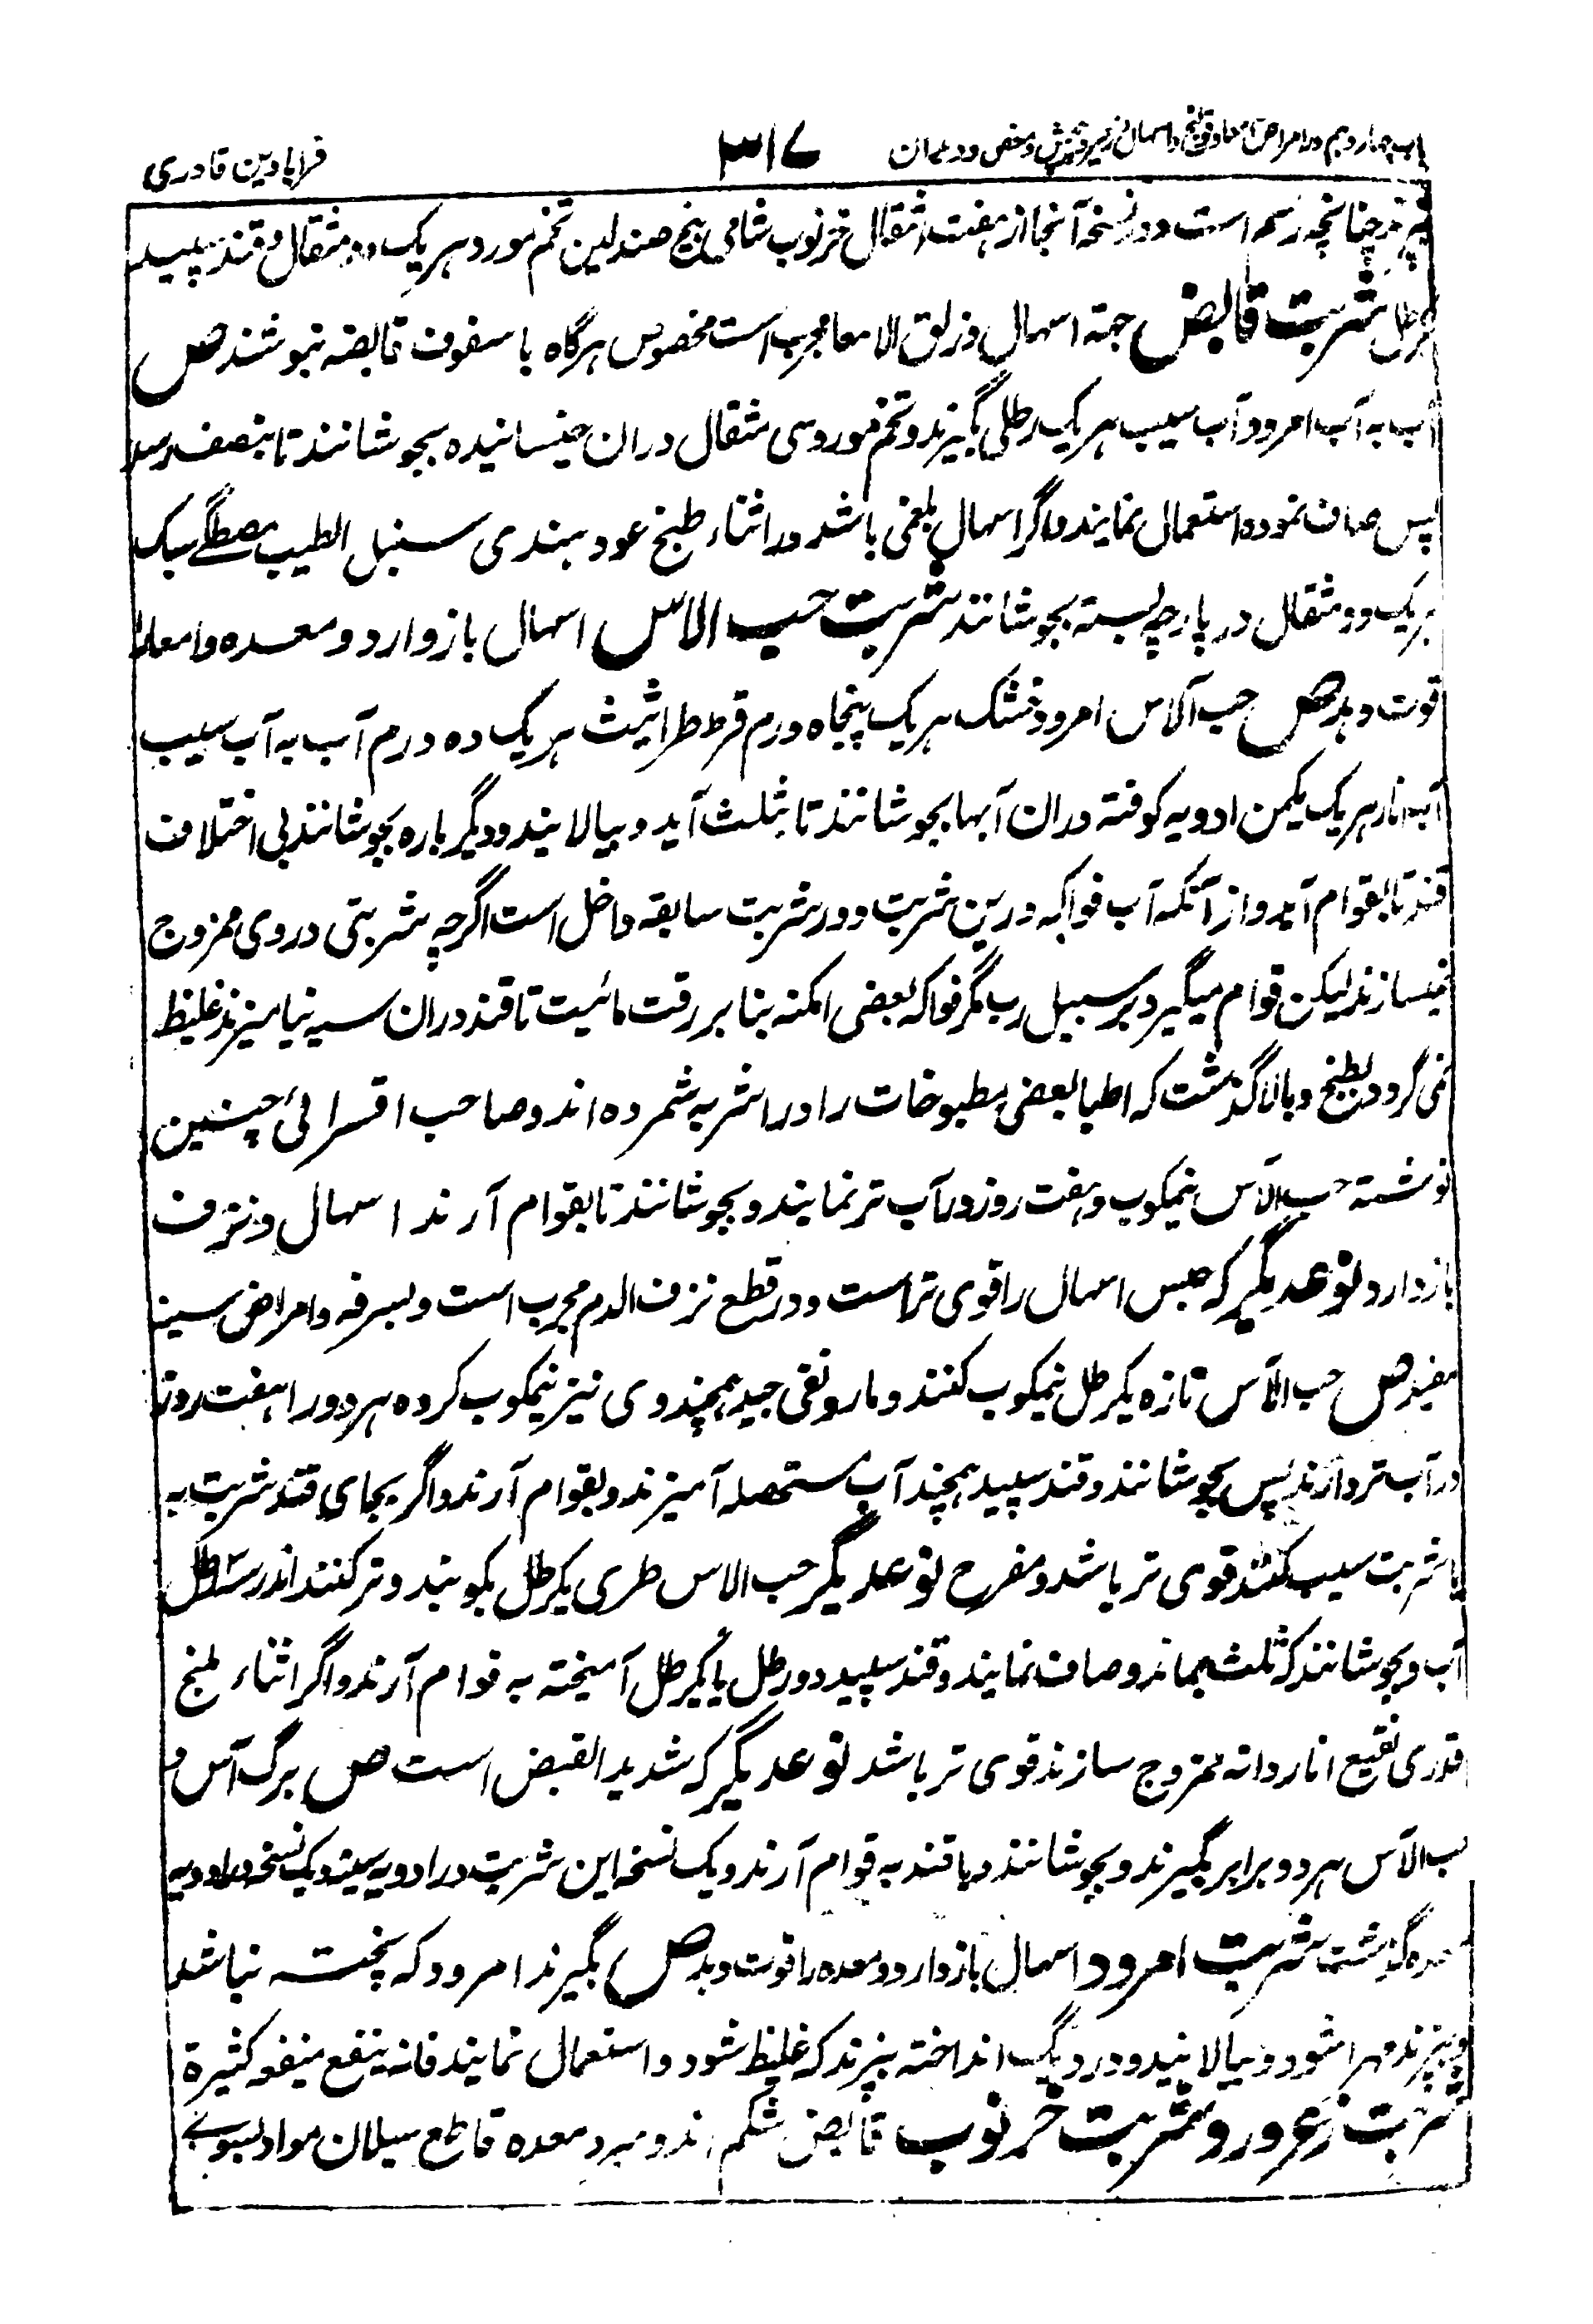 باب چهاردهم در امراض امعا و قولنج و اسهال و زحیر و پیچش و مغص و دیدان ۳۱۷ قرابادین قادری
پزند چنانچه رسم است و در نسخه آنجا از هفت مثقال خرنوب شامی پنج صندلین تخم مورد هریک ده مثقال و قند سپید
رطل شربت قابض جهته اسهال و زلق الامعا مجرب است مخصوص هرگاه با سفوف قابضه بنوشند ص
آب به آب امرود و آب سیب هریک رطلی بگیرند و تخم مورد سی مثقال دران خیسانیده بجوشانند تا بنصف رسد
پس صاف نموده استعمال نمایند و اگر اسهال بلغمی باشد در اثناء طبخ عود هندی سنبل الطیب مصطگی سک
هریک دو مثقال در پارچه بسته بجوشانند شربت حب الاس اسهال بازدارد و معده و امعا را
قوت دهد ص حب آلاس امرود خشک هریک پنجاه درم قرط طراثیث هریک ده درم آب به آب سیب
آب انار هریک یکمن ادویه کوفته دران آبها بجوشانند تا بثلث آید و بپالایند و دیگر باره بجوشانند بی اختلاف
قند تا بقوام آید و از آنکه آب فواکه درین شربت و در شربت سابقه داخل است اگرچه شربتی در وی ممزوج
نمیسازند لیکن قوام میگیرد بر سبیل رب مگر فواکه بعضی امکنه بنا بر رقت مائیت تا قند دران سیه نیامیزند غلیظ
نمی گردد بطبخ و بالا گذشت که اطبا بعضی مطبوخات را در اشربه شمرده اند و صاحب اقسرائی چنین
نوشته حب الآس نیمکوب و هفت روز در آب تر نمایند و بجوشانند تا بقوام آرند اسهال و نزف
بازدارد نوعدیگر که حبس اسهال را قوی تراست و در قطع نزف الدم مجرب است و بسرفه و امراض سینه
مفید ص حب الآس تازه یکرطل نیمکوب کنند و مازو نقی جید همچند وی نیز نیمکوب کرده هر دو را هفت روز
در آب تر دارند پس بجوشانند و قند سپید همچند آب مستحصله آمیزند و بقوام آرند و اگر بجای قند شربت به
یا شربت سیب کنند قوی تر باشد و مفرح نوعدیگر حب الاس طری یکرطل بکوبند و تر کنند اندر سه رطل
آب و بجوشانند که ثلث بماند و صاف نمایند و قند سپید دو رطل یا یکرطل آمیخته به قوام آرند و اگر اثناء طبخ
قدری نقیع اناردانه ممزوج سازند قوی تر باشد نوعدیگر که شدید القبض است ص برگ آس و
حب الآس هر دو برابر بگیرند و بجوشانند و با قند به قوام آرند و یک نسخه این شربت در ادویه سینه و یک نسخه در ادویه
معده گذشت شربت امرود اسهال بازدارد و معده را قوت دهد ص بگیرند امرود که پخته نباشد
و بپزند مهرا شود و بپالایند و در دیگ انداخته بپزند که غلیظ شود و استعمال نمایند فانه ینفع منفعه کثیرة
شربت زعرور و شربت خرنوب قابض شکم اند و مبرد معده قاطع سیلان مواد بسوی